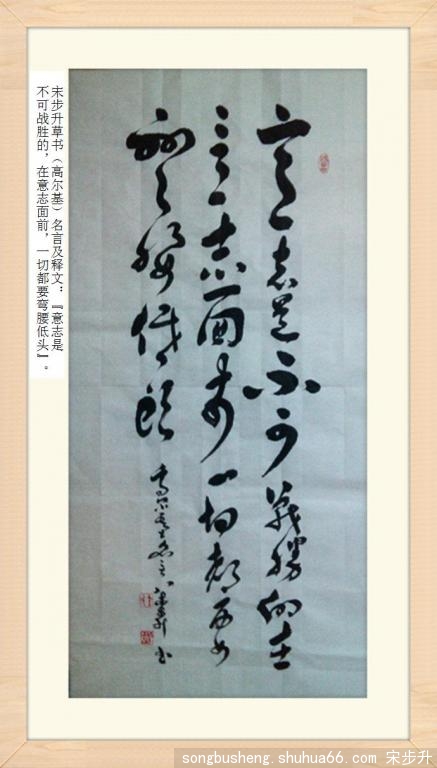 意志是不可戰勝的在
意志面前一切都要
彎腰低頭
高尔基名言
步升书
宋步升草书（高尔基）名言及释文：『意志是
不可战胜的，在意志面前，一切都要弯腰低头』。
songbusheng.shuhua66.com 宋步升